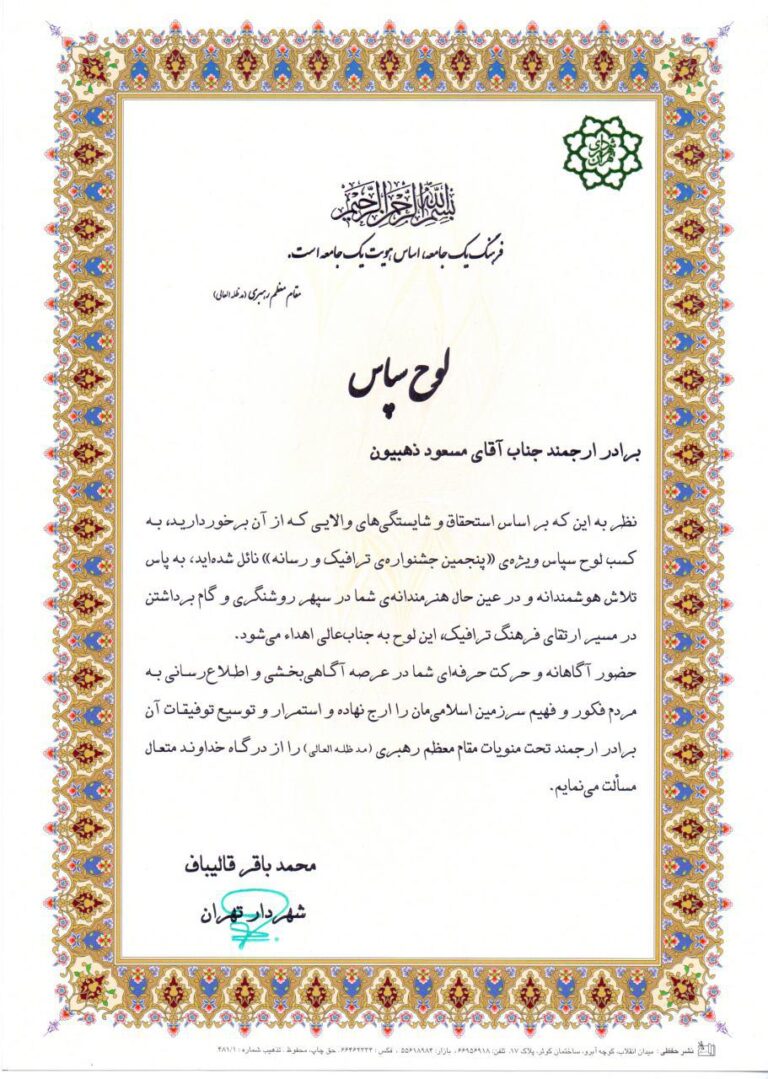 شهرداری تهران
بسم الله الرحمن الرحیم
فرهنگ یک جامعه، اساس هویت یک جامعه است.
مقام معظم رهبری (مد ظله العالی)
لوح سپاس
برادر ارجمند جناب آقای مسعود ذهبیون
نظر به این که بر اساس استحقاق و شایستگی‌های والایی که از آن برخوردارید، به
کسب لوح سپاس ویژه‌ی «پنجمین جشنواره‌ی ترافیک و رسانه» نائل شده‌اید، به پاس
تلاش هوشمندانه و در عین حال هنرمندانه‌ی شما در سپهر روشنگری و گام برداشتن
در مسیر ارتقای فرهنگ ترافیک، این لوح به جناب‌عالی اهداء می‌شود.
حضور آگاهانه و حرکت حرفه‌ای شما در عرصه آگاهی‌بخشی و اطلاع‌رسانی به
مردم فکور و فهیم سرزمین اسلامی‌مان را ارج نهاده و استمرار و توسیع توفیقات آن
برادر ارجمند تحت منویات مقام معظم رهبری (مد ظله العالی) را از درگاه خداوند متعال
مسألت می‌نمایم.
محمد باقر قالیباف
شهردار تهران
نشر حفظی : میدان انقلاب، کوچه آبرو، ساختمان کوثر، پلاک ۱۷، تلفن: ۶۶۹۵۶۹۱۸ ـ بازار: ۵۵۶۱۸۹۸۴ ـ فکس: ۶۶۴۶۲۳۳۳ ـ حق چاپ، محفوظ ـ تذهیب شماره: ۴۸۱/۱